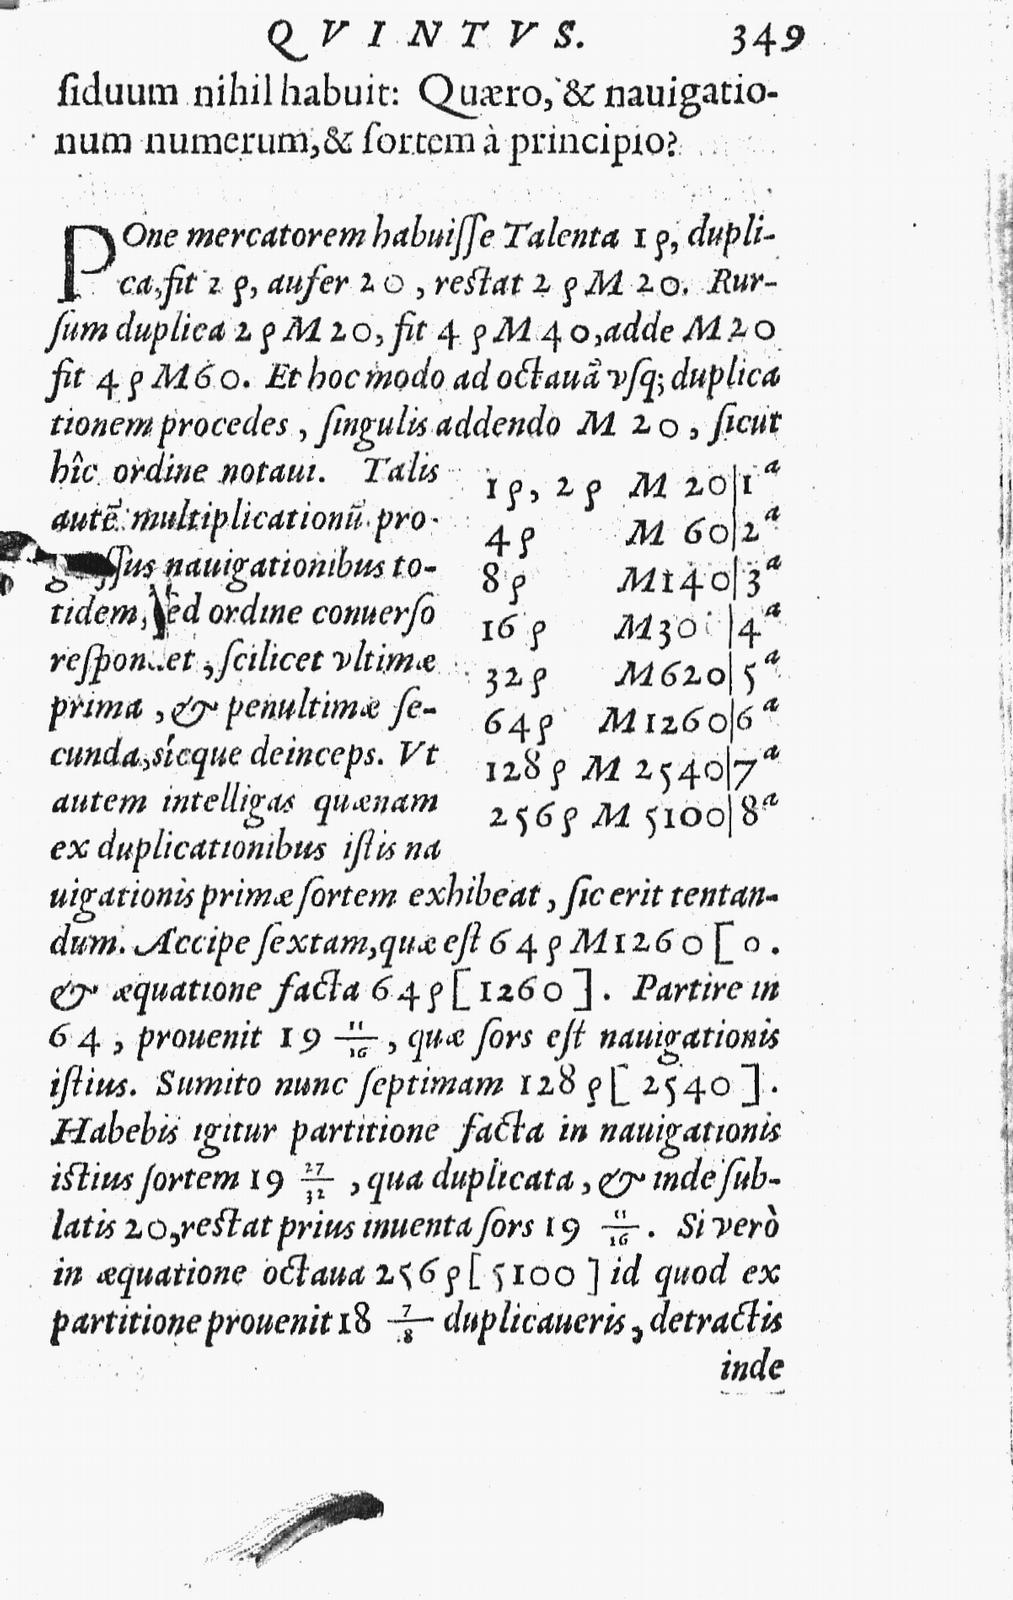 QVINTVS. 349
ſiduum nihil habuit: Quæro, & nauigatio-
num numerum, & ſortem à principio?
POne mercatorem habuiſſe Talenta 1ρ, dupli-
ca, fit 2 ρ, aufer 20, reſtat 2 ρ M 20. Rur-
ſum duplica 2 ρ M 20, fit 4 ρ M 40, adde M 20
fit 4 ρ M 60. Et hoc modo ad octauã vſq; duplica
tionem procedes, ſingulis addendo M 20, ſicut
hîc ordine notaui. Talis
autẽ multiplicationũ pro-
nauigationibus to-
tidem, ſed ordine conuerſo
ſcilicet vltimæ
prima, & penultimæ ſe-
cunda, sícque deinceps. Vt
autem intelligas quænam
ex duplicationibus iſtis na
1ρ, 2ρ M 20|1ª
4ρ M 60|2ª
8ρ M140|3ª
16ρ |4ª
32ρ M620|5ª
64ρ M1260|6ª
128ρ M 2540|7ª
256ρ M 5100|8ª
uigationis primæ ſortem exhibeat, ſic erit tentan-
dum. Accipe ſextam, quæ eſt 64 ρ M1260 [ 0.
& æquatione facta 64ρ [1260]. Partire in
64, prouenit 19 11/16, quæ ſors eſt nauigationis
iſtius. Sumito nunc ſeptimam 128 ρ [ 2540 ].
Habebis igitur partitione facta in nauigationis
iſtius ſortem 19 27/32, qua duplicata, & inde ſub-
latis 20, reſtat prius inuenta ſors 19 11/16. Si verò
in æquatione octaua 256ρ [ 5100 ] id quod ex
partitione prouenit 18 7/8 duplicaueris, detractis
inde